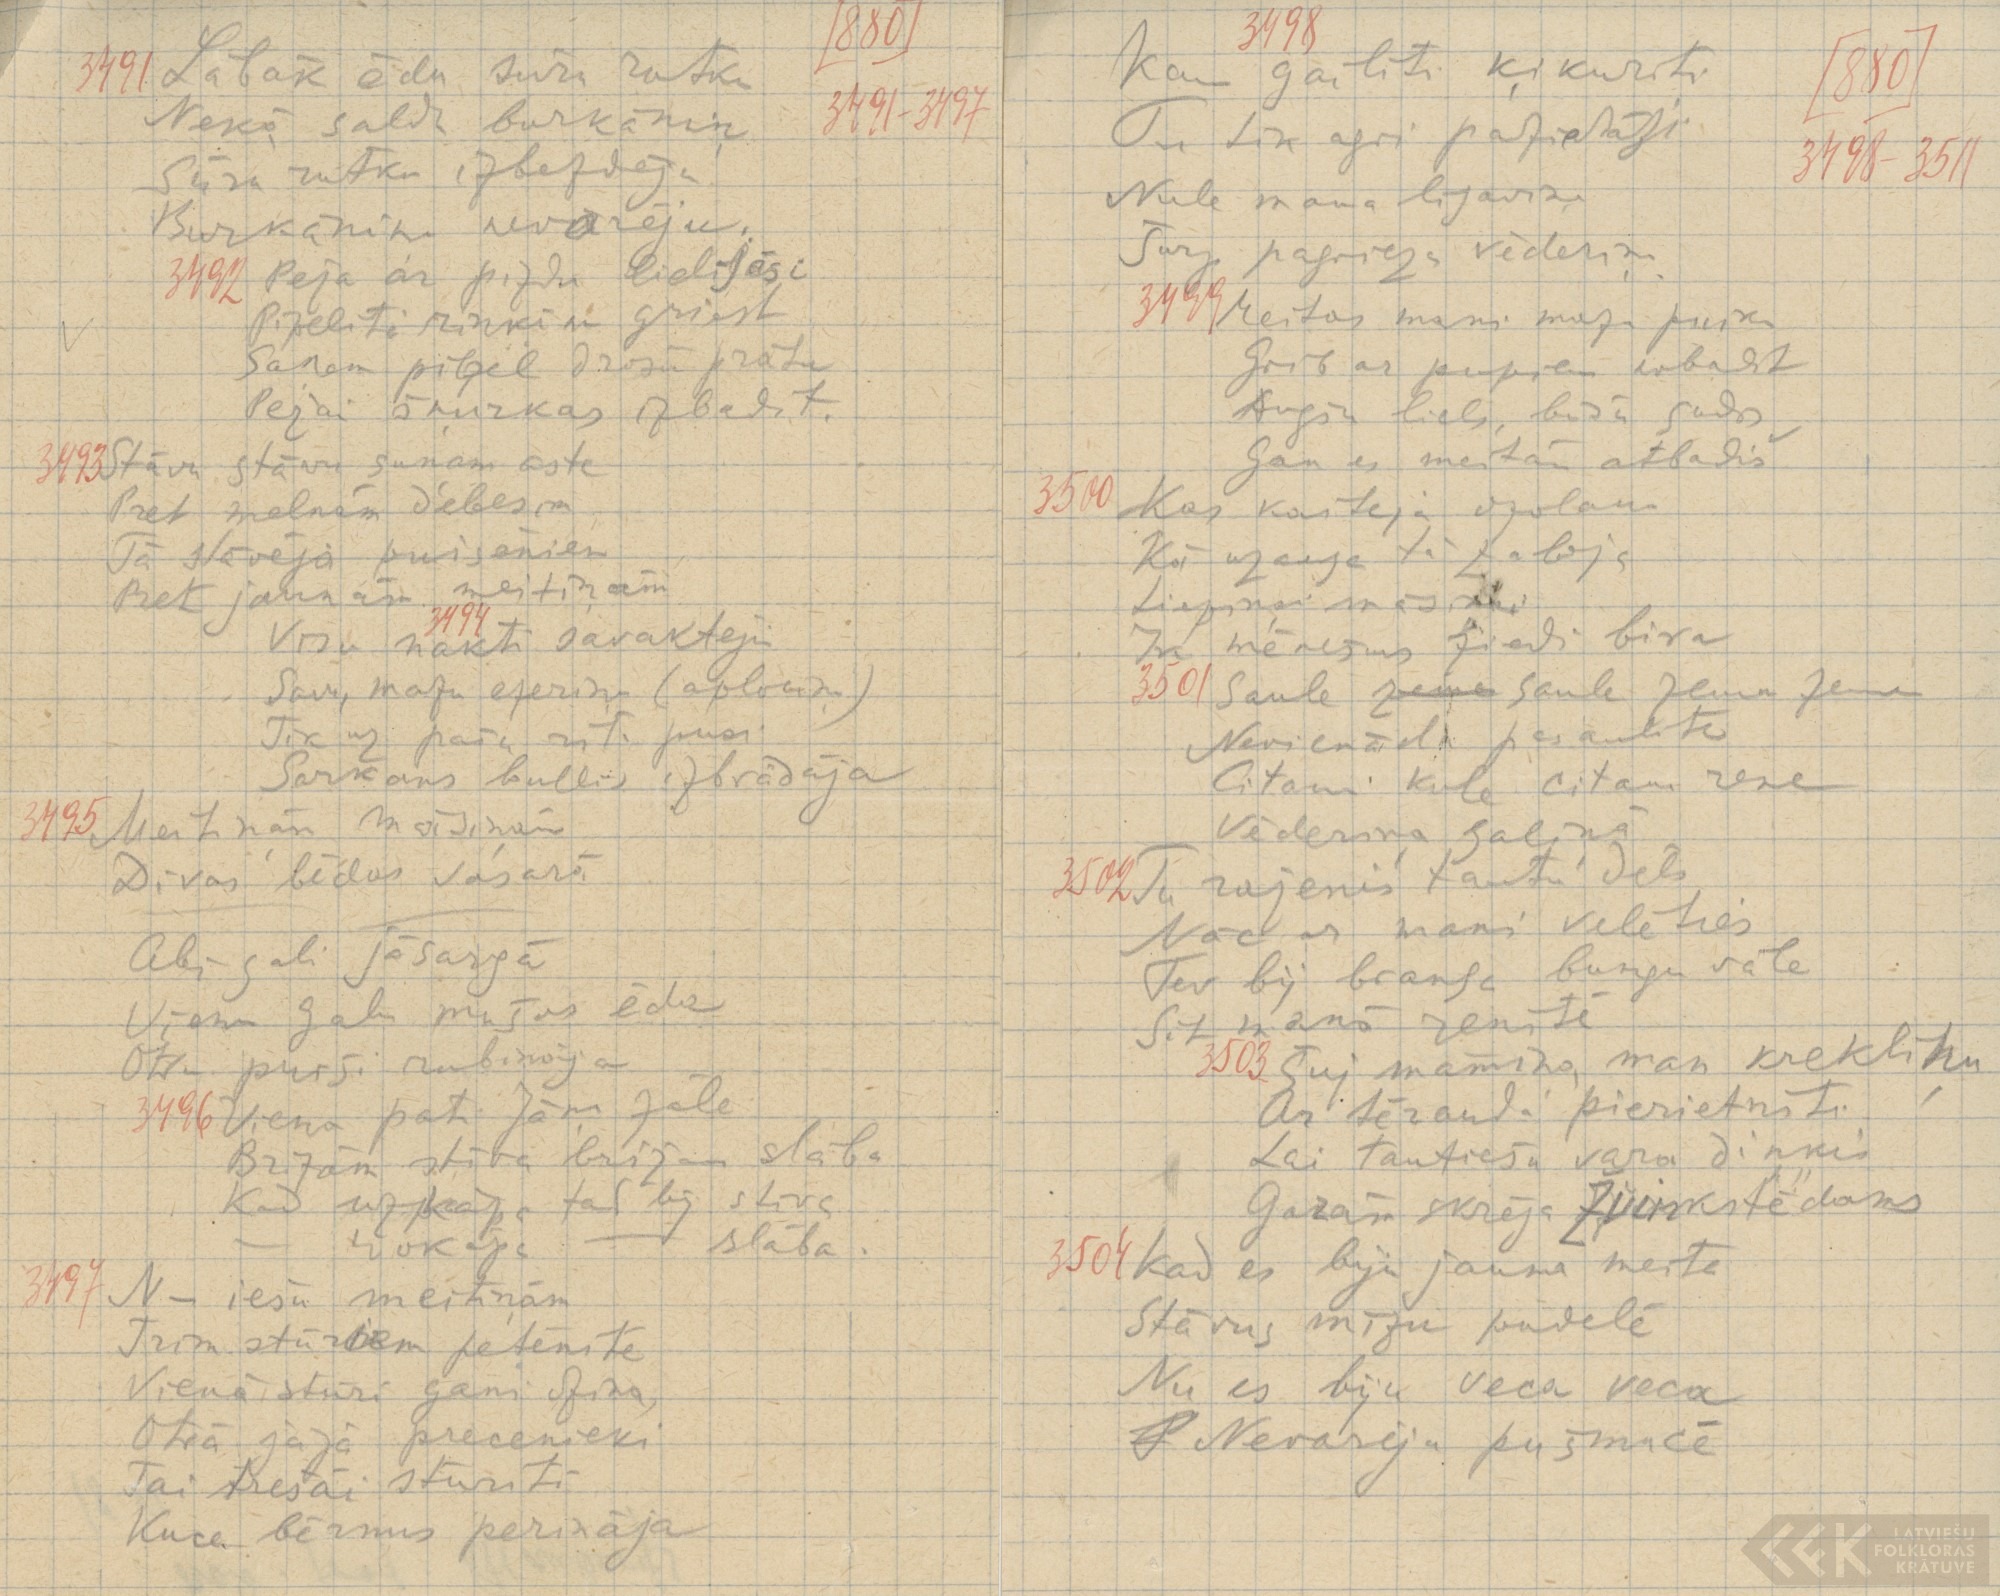 [880]
3491-3497
3491 Labāk ēdu sūru rutku
Nekā saldu burkāniņ
Sūru rutku izbezdēju
Burkāniņu nevarēju.
3492 Peža ar pizdu lielijāsi
Pipelīti riņķī griest
Saņem pipel drošu prātu
Pežai šņurkas izbadīt.
3493 Stāvu stāvu sunam aste
Pret melnām debesīm
Tā stāvēja puisēniem
Pret jaunām meitiņām
3494
Visu nakti savaktēju
Savu mazu ezeriņu (aplociņu)
Tik uz pašu rīta pusi
Sarkans bullis izbradāja
3495 Meitiņām māsiņām
Divas bēdas vasarā
Abi gali jāsargā
Vienu galu mušas ēda
Otru puiši rubināja
3496 Viena pati Jāņu zāle
Brīžam stīva brīžam slāba
Kad uzkāpa tad bij stīva
— nokāpa — slāba.
3497 N— iešu meitiņām
Trim stūriem petēnīte
Vienā stūrī gani dzina,
Otrā jāja precenieki
Tai trešāi stūrītī
Kuce bērnus perināja
3498
[880]
3498-3511
Kam gailīti ķikurīti
Tu tik agri padziedāji
Nule mana līgaviņa
Šurp pagrieza vēderiņ
3499 Meitas mani mazu puiku
Grib ar pupiem nobadīt
Augšu liels, būšu gudrs
Gan es meitām atbadīs
3500 Kas kaitēja ozolam
Kā uzauga tā zaļoja
Liepiņai māsiņai
Ik mēnešus ziedi bira
3501 Saule saule zeme zeme
Nevienādi pasaulīte
Citami kule citam rene
Vēderiņa galiņā
3502 Tu rājenis tautu dēls
Nāc ar mani velēties
Tev bij branga bungu vāle
Sit manā renītē
3503 Šuj māmiņa man krekliņu
Ar tēraudu pierietnīti
Lai tautiešu vara dinķis
Garām skrēja žvinkstēdams
3504 Kad es biju jauna meita
Stāvus mīžu pudelē
Nu es biju veca veca
Nevarēju pušmucē
LATVIEŠU
FOLKLORAS
KRĀTUVE